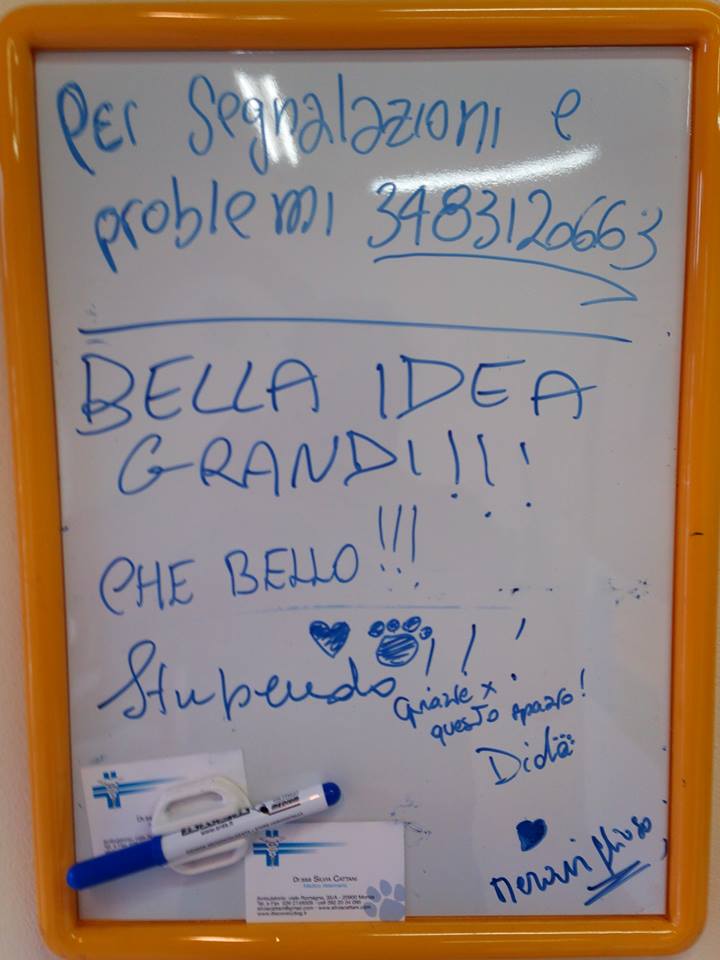 Per Segnalazioni e
problemi 3483120663
BELLA IDEA
GRANDI!!!!
CHE BELLO!!!
Stupendo!!!
Grazie x
questo spazio!
Dida
meraviglioso
Dr.ssa SILVIA CATTANI
Medico Veterinario